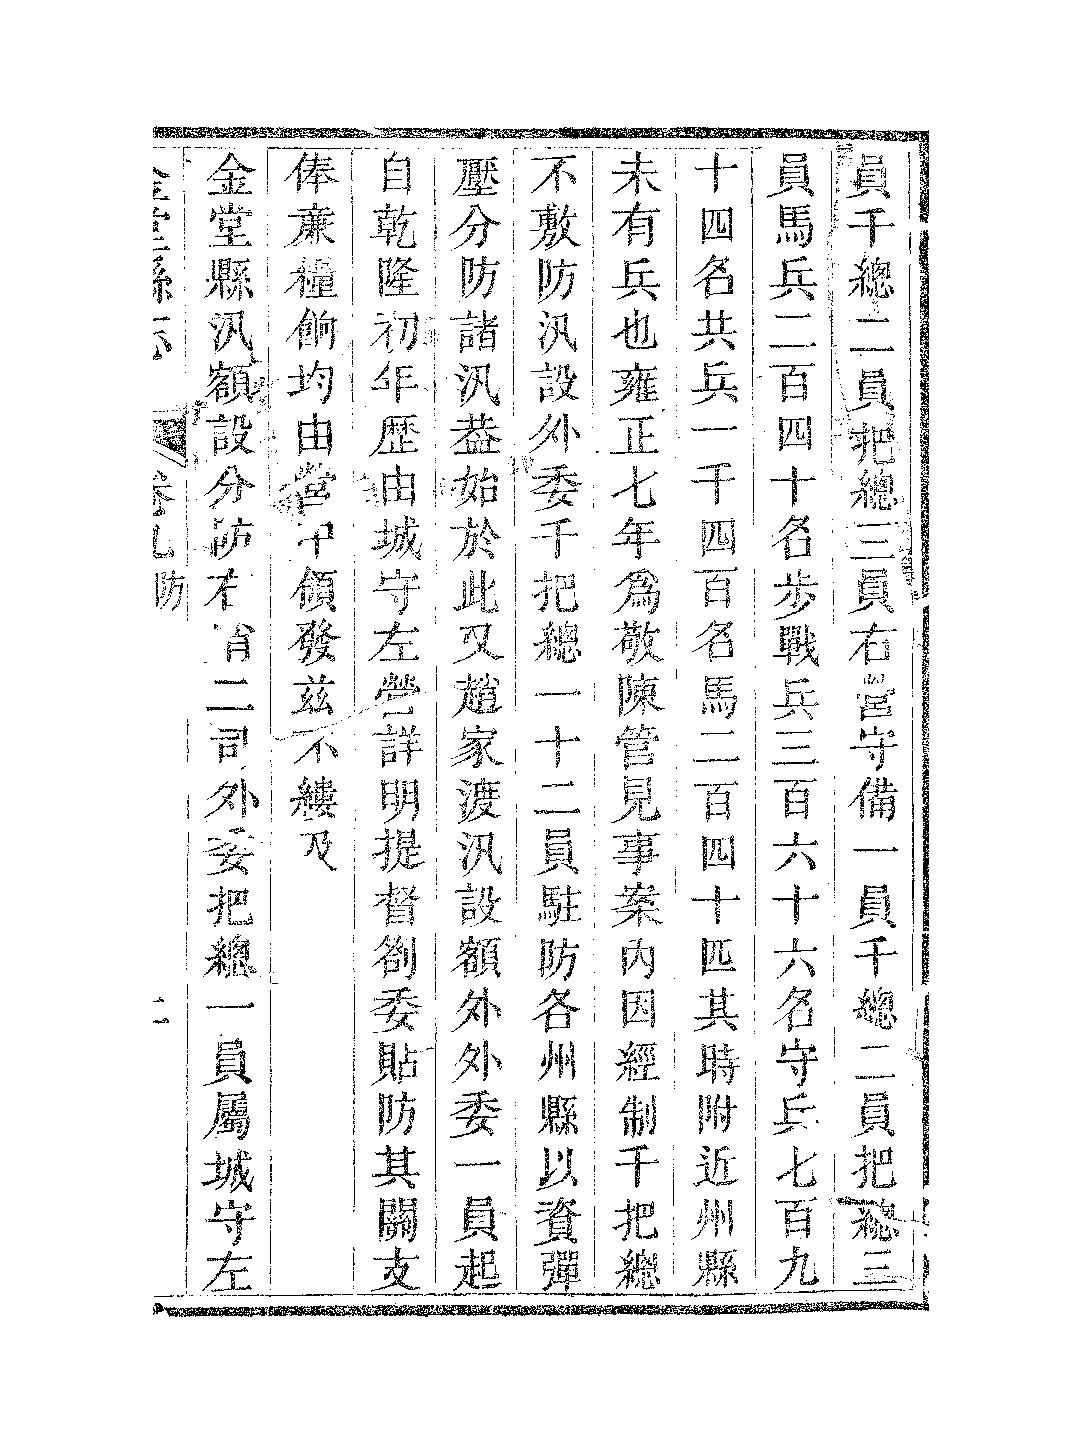 員千總二員把總三員右營守備一員千總二員把總三
員馬兵二百四十名步戰兵三百六十六名守兵七百九
十四名共兵一千四百名馬二百四十匹其時附近州縣
未有兵也雍正七年爲敬陳管見事案內因經制千把總
不敷防汛設外委千把總一十二員駐防各州縣以資彈
壓分防諸汛葢始於此又趙家渡汛設額外外委一員起
自乾隆初年歷由城守左營詳明提督劄委貼防其關支
俸廉糧餉均由營中領發茲不縷及
金堂縣汛額設分防存城二司外委把總一員屬城守左
金堂縣志 卷九防 二